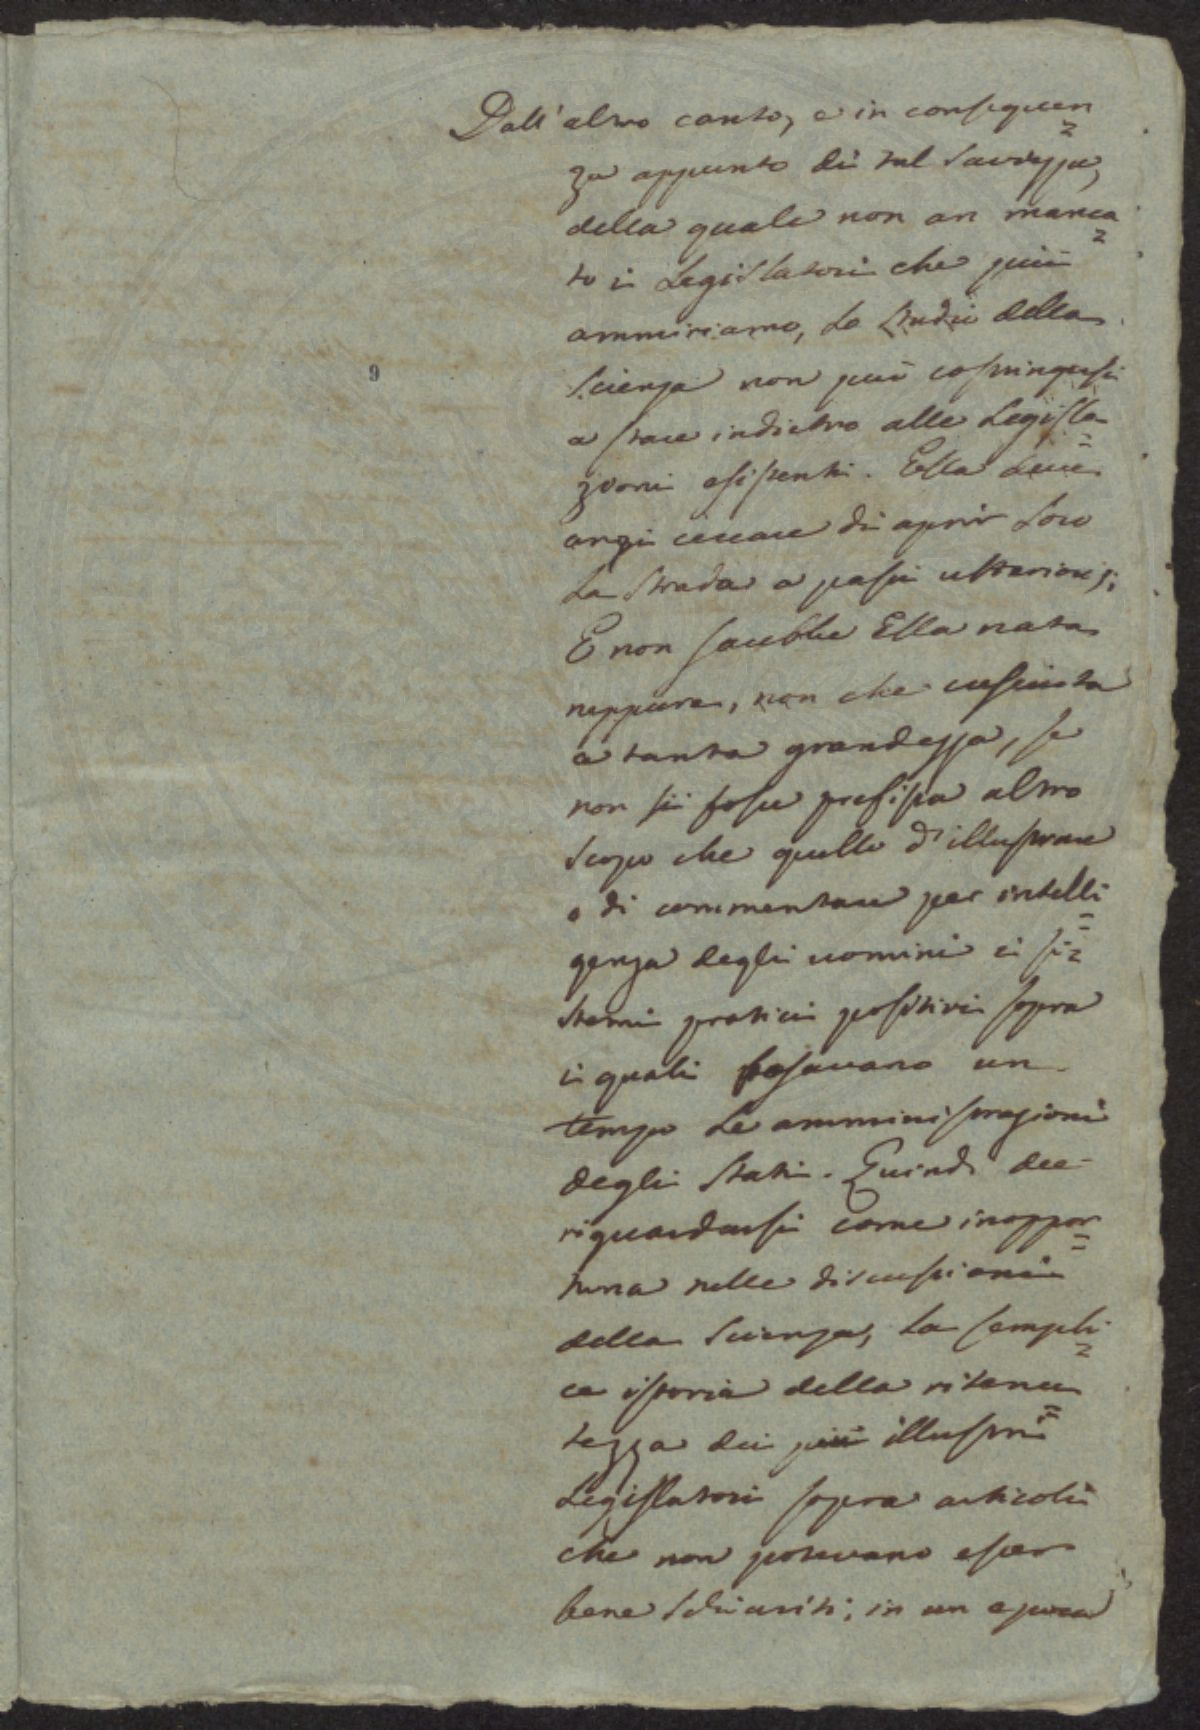 Dall'altro canto, e in conseguen=
za appunto di tal Saviezza,
della quale non an manca=
to i Legislatori che più
ammiriamo, Lo Studio della
Scienza non può costringersi
a stare indietro alle Legisla=
zioni esistenti. Ella deve
anzi cercare di aprir Loro
La Strada a passi ulteriori;
E non sarebbe Ella nata
neppure, non che cresciuta
a tanta grandezza, se
non si fosse prefissa altro
Scopo che quello d'illustrare
o di commentare per intelli=
genza degli uomini i si=
stemi pratici positivi sopra
i quali posavano un
tempo Le amministrazioni
degli Stati. Quindi dee
riguardarsi come inoppor=
tuna nelle discussioni
della Scienza, La sempli=
ce istoria della ritenu=
tezza dei più illustri
Legislatori sopra articoli
che non potevano esser
bene Schiariti; in un epoca
9